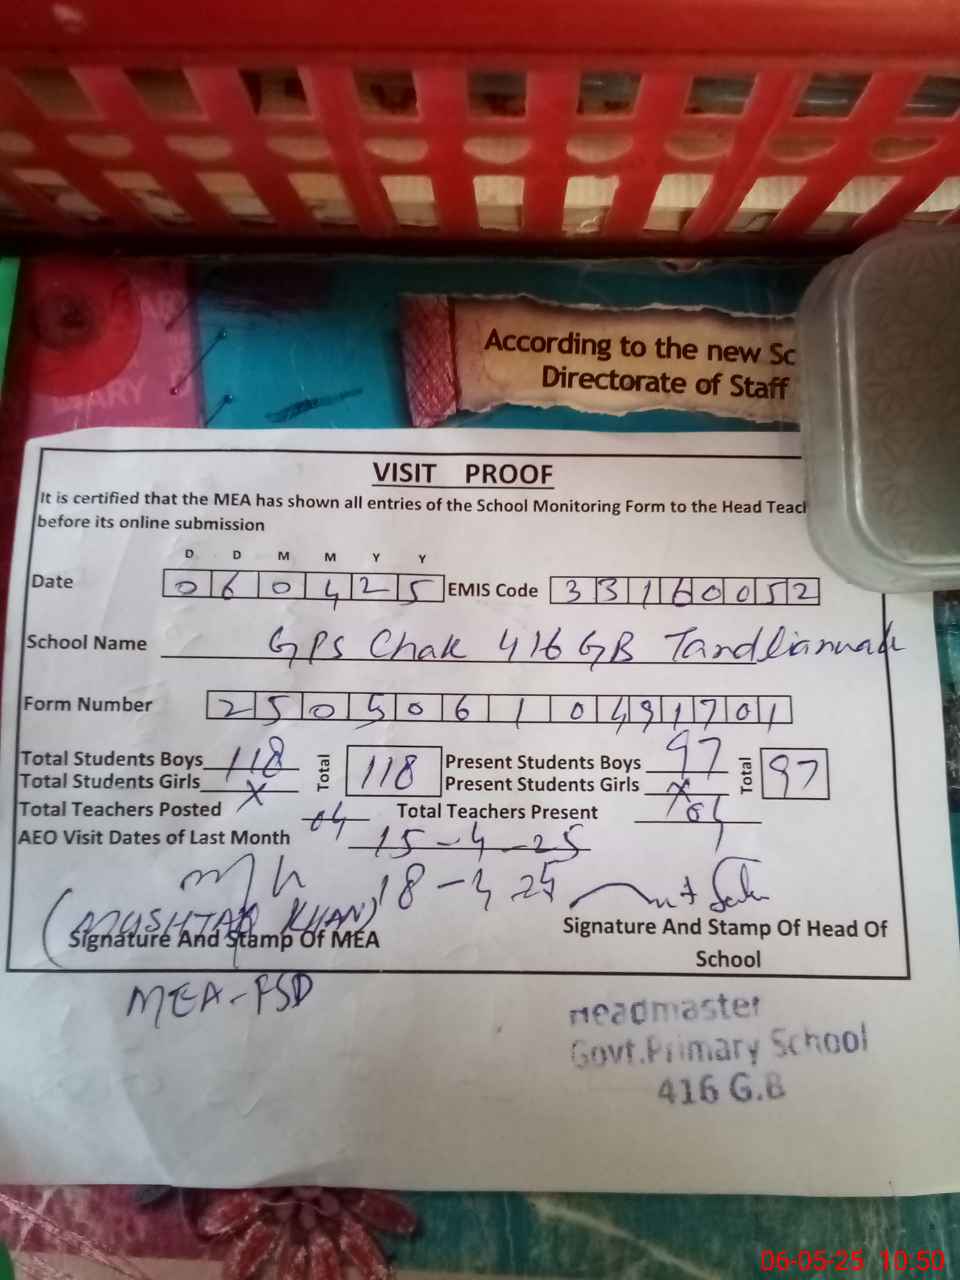 According to the new Sc
Directorate of Staff
VISIT PROOF
It is certified that the MEA has shown all entries of the School Monitoring Form to the Head Teac
before its online submission
D D M M Y Y
Date 0 6 0 4 2 5 EMIS Code 3 3 1 6 0 0 5 2
School Name GPS Chak 416 GB Tandlianwala
Form Number 2 5 0 5 0 6 1 0 4 9 1 7 0 1
Total Students Boys 118 Total 118 Present Students Boys 97 Total 97
Total Students Girls X Present Students Girls X
Total Teachers Posted 04 Total Teachers Present 04
AEO Visit Dates of Last Month 15-4-25
18-4-25
(MUSHTAQ KHAN)
Signature And Stamp Of MEA
Signature And Stamp Of Head Of
School
MEA-FSD
Headmaster
Govt.Primary School
416 G.B
06-05-25 10:50